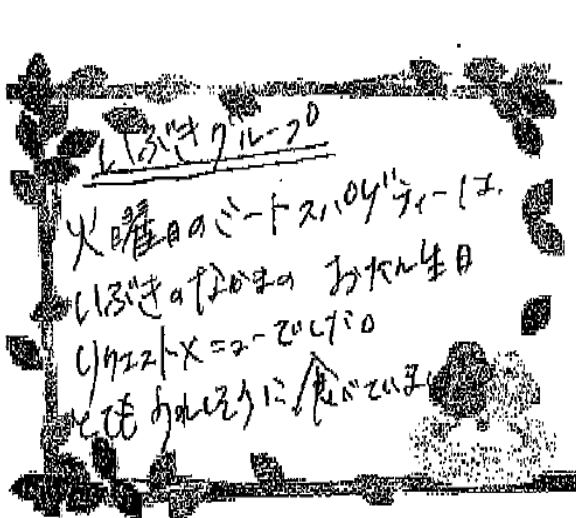 いぶきグループ
火曜日のミートスパゲティーは、
いぶきのなかまの お たん生日
リクエストメニューでした。
とても うれしそうに 食べていま